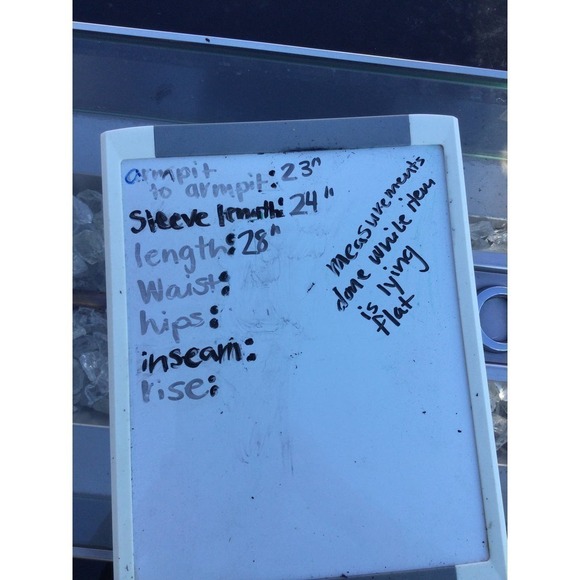 armpit
to armpit: 23"
Sleeve length: 24"
length: 28"
Waist:
hips:
inseam:
rise:
measurements
done while item
is lying
flat